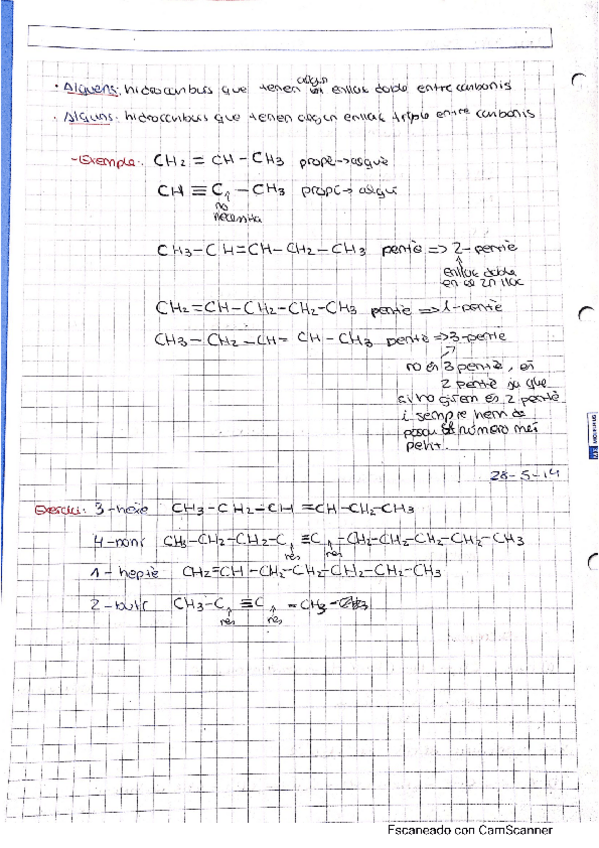 · Alquens: hidrocarburs que tenen algun enllaç doble entre carbonis
· Alquins: hidrocarburs que tenen algun enllaç triple entre carbonis
-Exemple: CH2 = CH - CH3 propè → alquè
CH ≡ C - CH3 propí → alquí
no
necessita
CH3-CH=CH-CH2-CH3 pentè => 2-pentè
enllaç doble
en el 2n lloc
CH2=CH-CH2-CH2-CH3 pentè => 1-pentè
CH3-CH2-CH=CH-CH3 pentè => 3-pentè
no és 3 pentè, és
2 pentè ja que
si ho girem és 2 pentè
i sempre hem de
posar el número més
petit.
28-5-14
Exercici: 3-hexè CH3-CH2-CH=CH-CH2-CH3
4-noní CH3-CH2-CH2-C≡C-CH2-CH2-CH2-CH2-CH3
res res
1-heptè CH2=CH-CH2-CH2-CH2-CH2-CH3
2-butí CH3-C≡C-CH3
res res
Escaneado con CamScanner